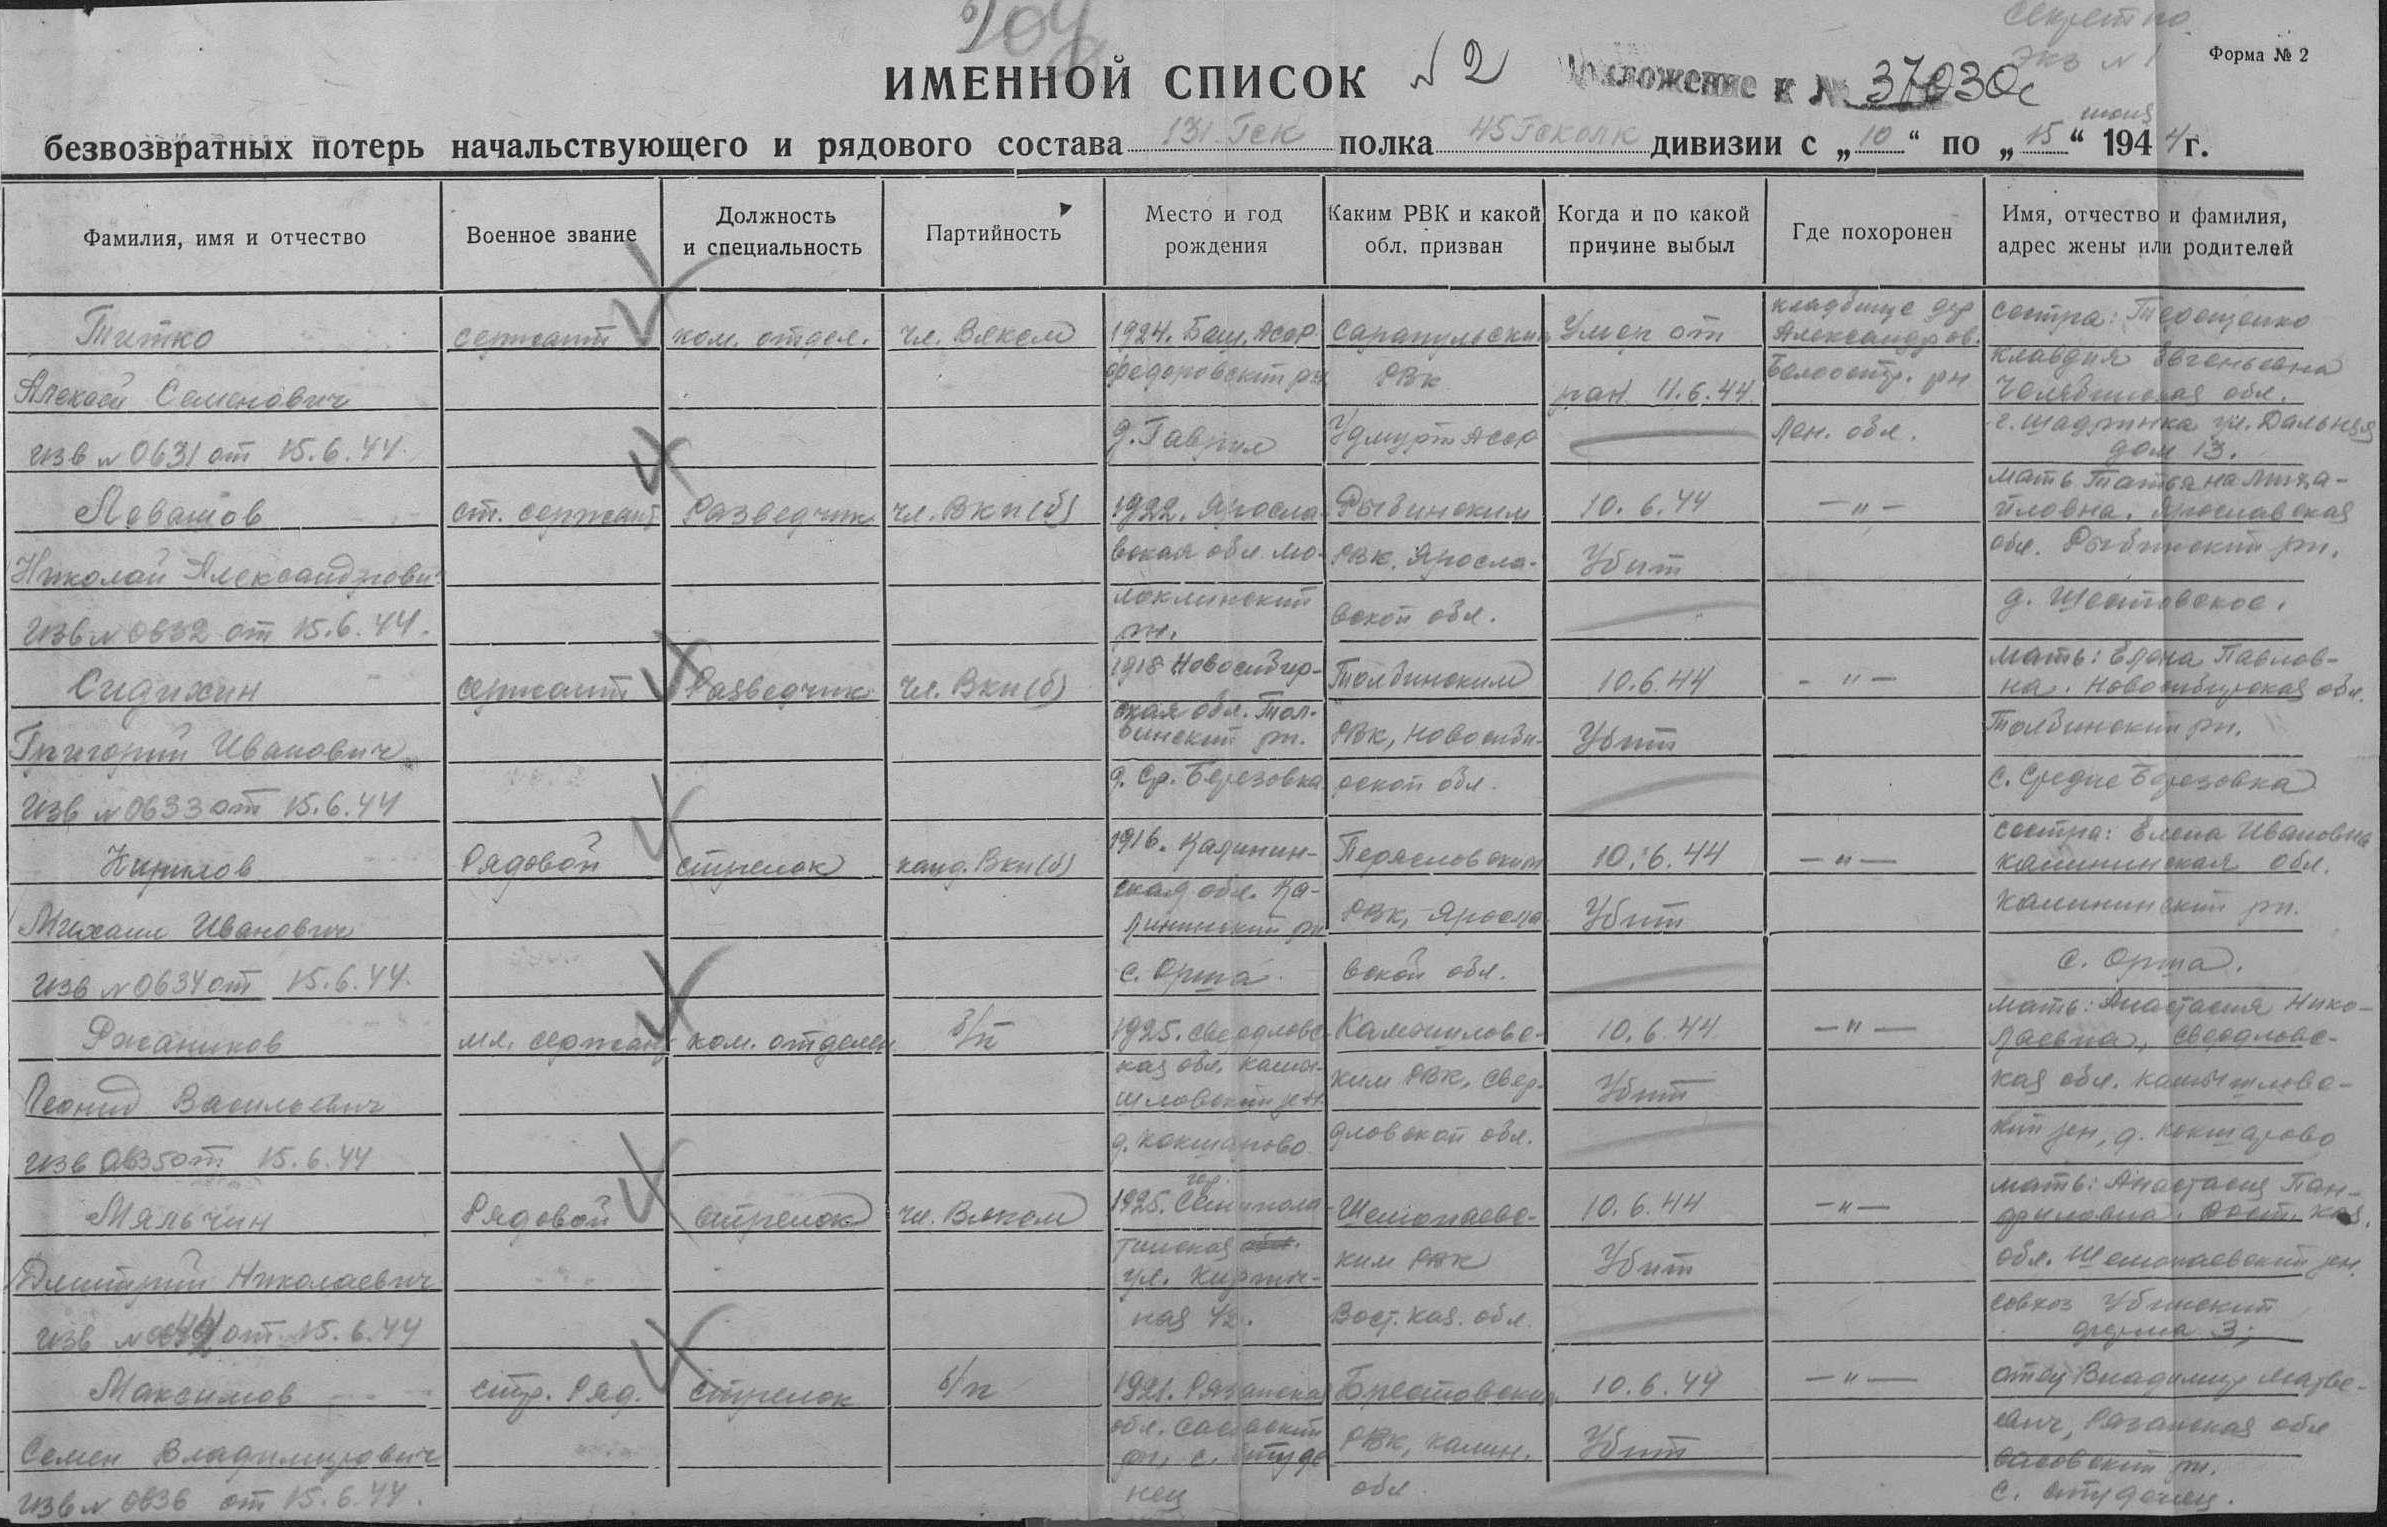 секретно
Экз №1
Форма № 2
ИМЕННОЙ СПИСОК №2 Приложение к № 37030с
безвозвратных потерь начальствующего и рядового состава 131 Гск полка 45 Гсколк дивизии с „10“ по „15“ июня 1944г.
Фамилия, имя и отчество
Военное звание
Должность
и специальность
Партийность
Место и год
рождения
Каким РВК и какой
обл. призван
Когда и по какой
причине выбыл
Где похоронен
Имя, отчество и фамилия,
адрес жены или родителей
Титко
Алексей Семенович
изв №0631 от 15.6.44.
сержант
ком. отдел.
чл. Влксм
1924. Баш. Асср
федоровский рн
д. Гаврил
Сарапульским
РВК
Удмурт Асср
Умер от
ран 11.6.44.
кладбище дер
Александров.
Белоостр. рн
Лен. обл.
сестра: Терещенко
Клавдия Евгеньевна
Челябинская обл.
г. Шадринка ул. Дальняя
дом 13.
Левашов
Николай Александрович
изв №0632 от 15.6.44.
ст. сержант
Разведчик
чл. Вкп(б)
1922. Яросла
вская обл. Мо-
локлинский
рн.
Рыбинским
РВК. Яросла-
вской обл.
10.6.44
Убит
— " —
мать Татьяна Миха-
йловна. Ярославская
обл. Рыбинский рн.
д. Шестовское.
Сидихин
Григорий Иванович
изв №0633 от 15.6.44
сержант
Разведчик
чл. Вкп(б)
1918 Новосибир-
ская обл. Тол-
бинский рн.
д. Ср. Березовка
Толбинским
РВК, Новосиби-
рской обл.
10.6.44
Убит
— " —
мать: Елена Павлов-
на. Новосибирская обл.
Толбинский рн.
с. Средне Березовка
Кирилов
Михаил Иванович
изв №0634 от 15.6.44.
Рядовой
стрелок
канд. Вкп(б)
1916. Калинин-
ская обл. Ка-
линински рн
с. Орша.
Переславским
РВК, Яросла
вской обл.
10.6.44
Убит
— " —
сестра: Елена Ивановна
калининская обл.
Калининский рн.
с. Орша.
Ржаников
Леонид Васильевич
изв 0635 от 15.6.44
мл. сержант
ком. отделен
б/п
1925. Свердловс-
кая обл. Камы-
шловский рен.
д. Кокшарово
Камышловс-
ким РВК, Свер-
дловской обл.
10.6.44
Убит
— " —
мать: Анастасия Нико-
лаевна, Свердловс-
кая обл. Камышловс-
кий рен, д. Кокшарово
Мяльчин
Дмитрий Николаевич
изв № от 15.6.44
Рядовой
стрелок
чл. Влксм
гор.
1925. Семипала-
тинская обл.
ул. Кирпич-
ная 42.
Шемонаевс-
ким РВК
Вост. Каз. обл.
10.6.44
Убит
— " —
мать: Анастасия Пан-
филовна. Вост. Каз.
обл. Шемонаевский рен.
совхоз Убинский
ферма 3;
Максимов
Семен Владимирович
изв № 0636 от 15.6.44.
стр. Ряд.
стрелок
б/п
1921. Рязанская
обл. Сасовский
рн. с. Студе
нец
РВК, калин.
обл.
10.6.44
Убит
— " —
отец Владимир Матве-
евич, Рязанская обл
Сасовский рн.
с. Студенец.